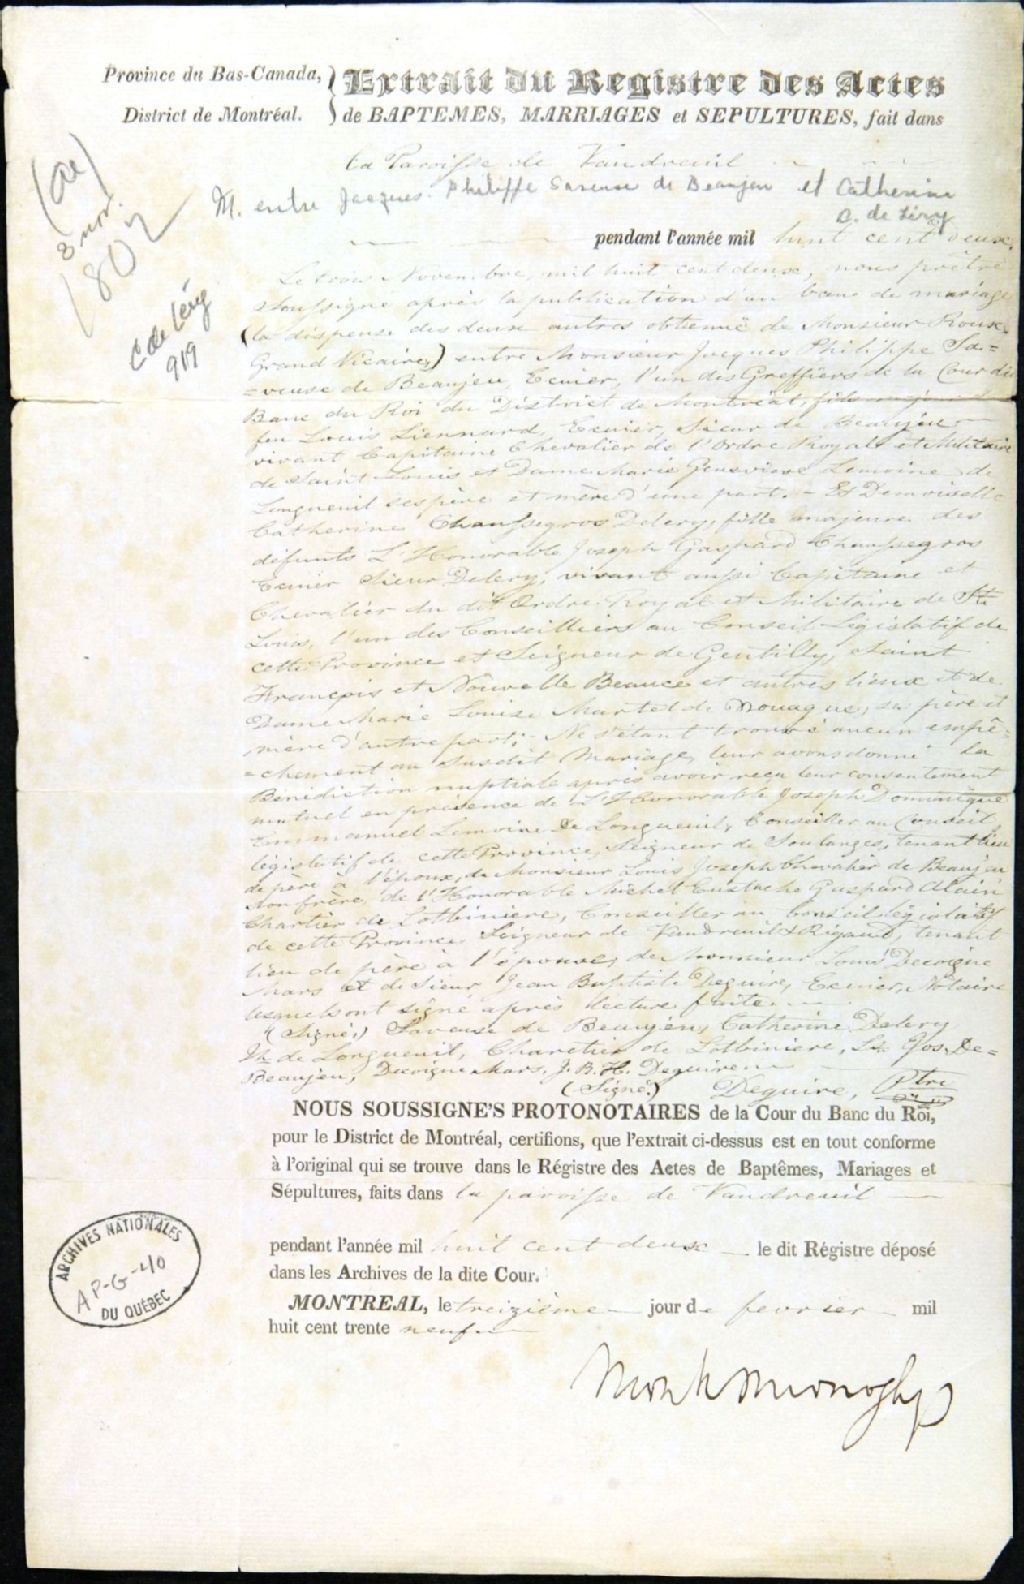 Province du Bas-Canada,
District de Montréal.
Extrait du Registre des Actes
de BAPTEMES, MARRIAGES et SEPULTURES, fait dans
la Paroisse de Vaudreuil
M. entre Jacques Philippe Saveuse de Beaujeu et Catherine
C. de Léry
pendant l'année mil huit cent deux,
(ac)
3 nov.
1802
C de Léry
919
Le trois Novembre, mil huit cent deux, nous prêtre
soussigné après la publication d'un banc de mariage
(la dispense des deux autres obtenuë de Monsieur Roux
Grand Vicaire,) entre Monsieur Jacques Philippe Sa=
=veuse de Beaujeu, Ecuier, l'un des Greffiers de la Cour du
Banc du Roi du District de Montréal, fils majeur de
feu Louis Liennard, Ecuier, Sieur de Beaujeu
vivant Capitaine Chevalier de l'Ordre Royal et Militaire
de Saint Louis et Dame Marie Genevieve Lemoine de
Longueuil ses père et mère d'une part. - Et Demoiselle
Catherine Chaussegros Delery, fille majeure des
défunts L'Honorable Joseph Gaspard Chaussegros
Ecuier Sieur Delery, vivant aussi Capitaine et
Chevalier du dit Ordre Royal et Militaire de St.
Louis, l'un des Conseilliers au Conseil Législatif de
cette Province et Seigneur de Gentilly, Saint
François et Nouvelle Beauce et autres lieux et de
Dame Marie Louise Martel de Brouague, ses père et
mère d'autre part; Ne s'étant trouvé aucun empê=
=chement au susdit Mariage, leur avons donné la
Bénédiction nuptiale après avoir reçu leur consentement
mutuel en présence de L'Honorable Joseph Dominique
Emmanuel Lemoine de Longueuil, Conseiller au Conseil
législatif de cette Province, Seigneur de Soulanges, tenant lieu
de père à l'époux, de Monsieur Louis Joseph Chevalier de Beaujeu
son frère, de l'Honorable Michel Eustache Gaspard Alain
Chartier de Lotbiniere, Conseiller au Conseil législatif
de cette Province Seigneur de Vaudreuil & Rigaud, tenant
lieu de père à l'épouse, de Monsieur Louis Decoigne
Mars et de Sieur Jean Baptiste Deguire, Ecuier, Notaire
lesquels ont signé après lecture faite.
(Signé,) Saveuse de Beaujeu, Catherine Delery
de Longueuil, Chartier de Lotbiniere, Ls. Jos. De=
Beaujeu, Decoigne Mars, J. B. H. Deguire
(Signé) Deguire, Ptre
NOUS SOUSSIGNE'S PROTONOTAIRES de la Cour du Banc du Roi,
pour le District de Montréal, certifions, que l'extrait ci-dessus est en tout conforme
à l'original qui se trouve dans le Régistre des Actes de Baptêmes, Mariages et
Sépultures, faits dans la paroisse de Vaudreuil
pendant l'année mil huit cent deux le dit Régistre déposé
dans les Archives de la dite Cour.
MONTREAL, le treizième jour de fevrier mil
huit cent trente neuf
ARCHIVES NATIONALES
AP-G-40
DU QUÉBEC